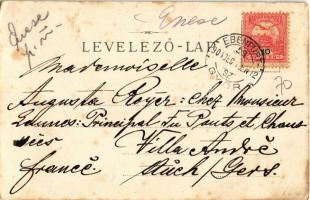 Enese
LEVELEZŐ-LAP
Mademoiselle
Augusta Royer: chez Monsieur
Launes: Principal du Ponts et Chaus
sées Villa André
Francé. Auch / Gers.
70